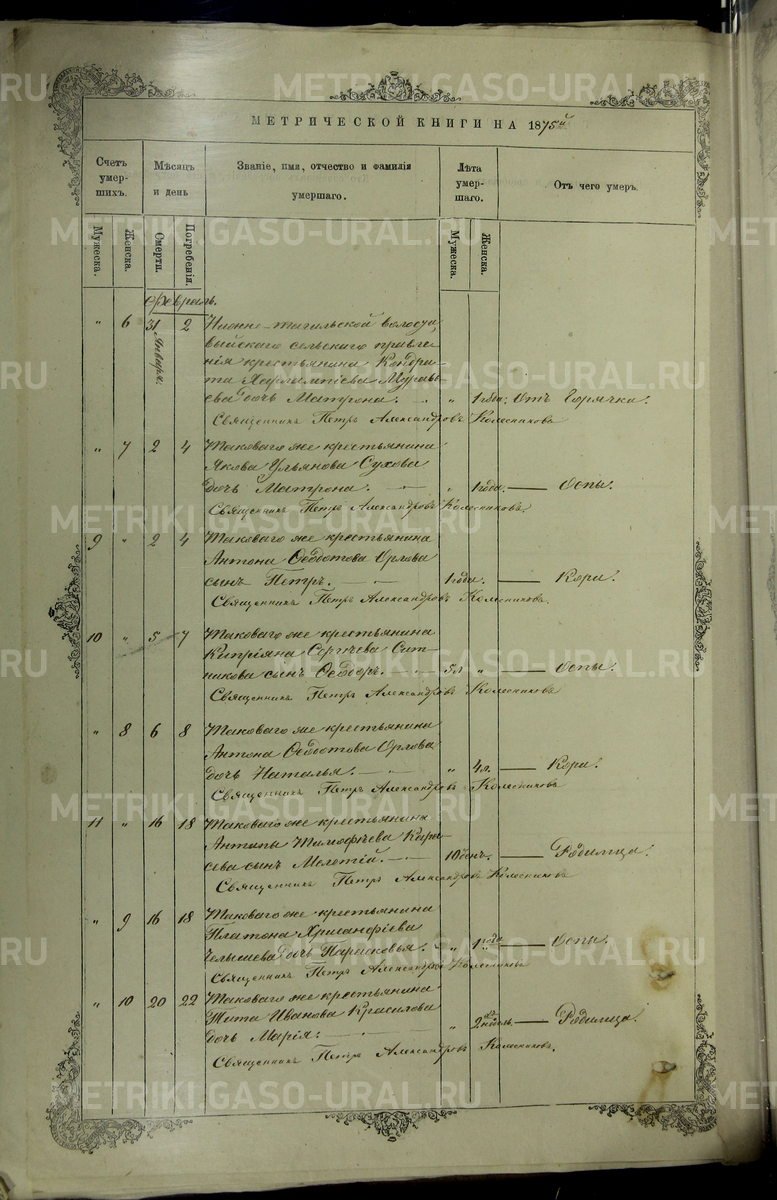 METRIKI.GASO-URAL.RU
МЕТРИЧЕСКОЙ КНИГИ НА 1875й
Счетъ умер-шихъ.
Мѣсяцъ и день
Званіе, имя, отчество и фамилія умершаго.
Лѣта умер-шаго.
Отъ чего умеръ.
Мужеска.
Женска.
Смерти.
Погребенія.
Мужеска.
Женска.
Февраль.
" 6 31 Января. 2 Нижне-Тагильской волости,
Выйскаго сельскаго правле-
нія крестьянина Кондра-
та Харлампіева Муравь-
ева дочь Матрона. " 1 года. Отъ Горячки.
Священникъ Петръ Александровъ Колесниковъ
" 7 2 4 Таковаго же крестьянина
Якова Ульянова Сухова
дочь Матрона. " 1 года. — Оспы.
Священникъ Петръ Александровъ Колесниковъ.
9 " 2 4 Таковаго же крестьянина
Антона Ѳедотова Орлова
сынъ Петръ. 1 года. — Кори.
Священникъ Петръ Александровъ Колесниковъ.
10 " 5 7 Таковаго же крестьянина
Кипріяна Сергѣева Сит-
никова сынъ Ѳедоръ. 5 л. " — Оспы.
Священникъ Петръ Александровъ Колесниковъ
" 8 6 8 Таковаго же крестьянина
Антона Ѳедотова Орлова
дочь Наталья. " 4 л. — Кори.
Священникъ Петръ Александровъ Колесниковъ
11 " 16 18 Таковаго же крестьянина
Антипы Тимофѣева
сева сынъ Мелетій. 10 дней. — Родимца.
Священникъ Петръ Александровъ Колесниковъ
" 9 16 18 Таковаго же крестьянина
Платона Хрисанфіева
дочь Парасковья. " 1 года — Оспы.
Священникъ Петръ Александровъ Колесниковъ
" 10 20 22 Таковаго же крестьянина
Тита Иванова Красилова
дочь Марія. " 2 недѣль — Родимца.
Священникъ Петръ Александровъ Колесниковъ.